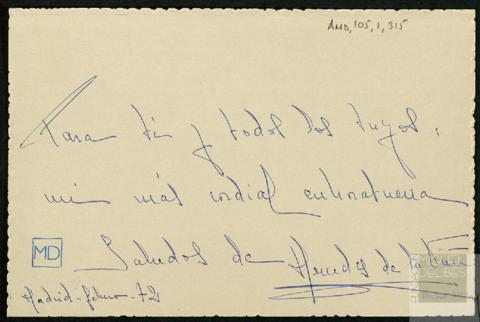 AMD,105,1,315
Para ti y todos los tuyos,
mi más cordial enhorabuena
MD
Saludos de
Madrid - febrero - 72